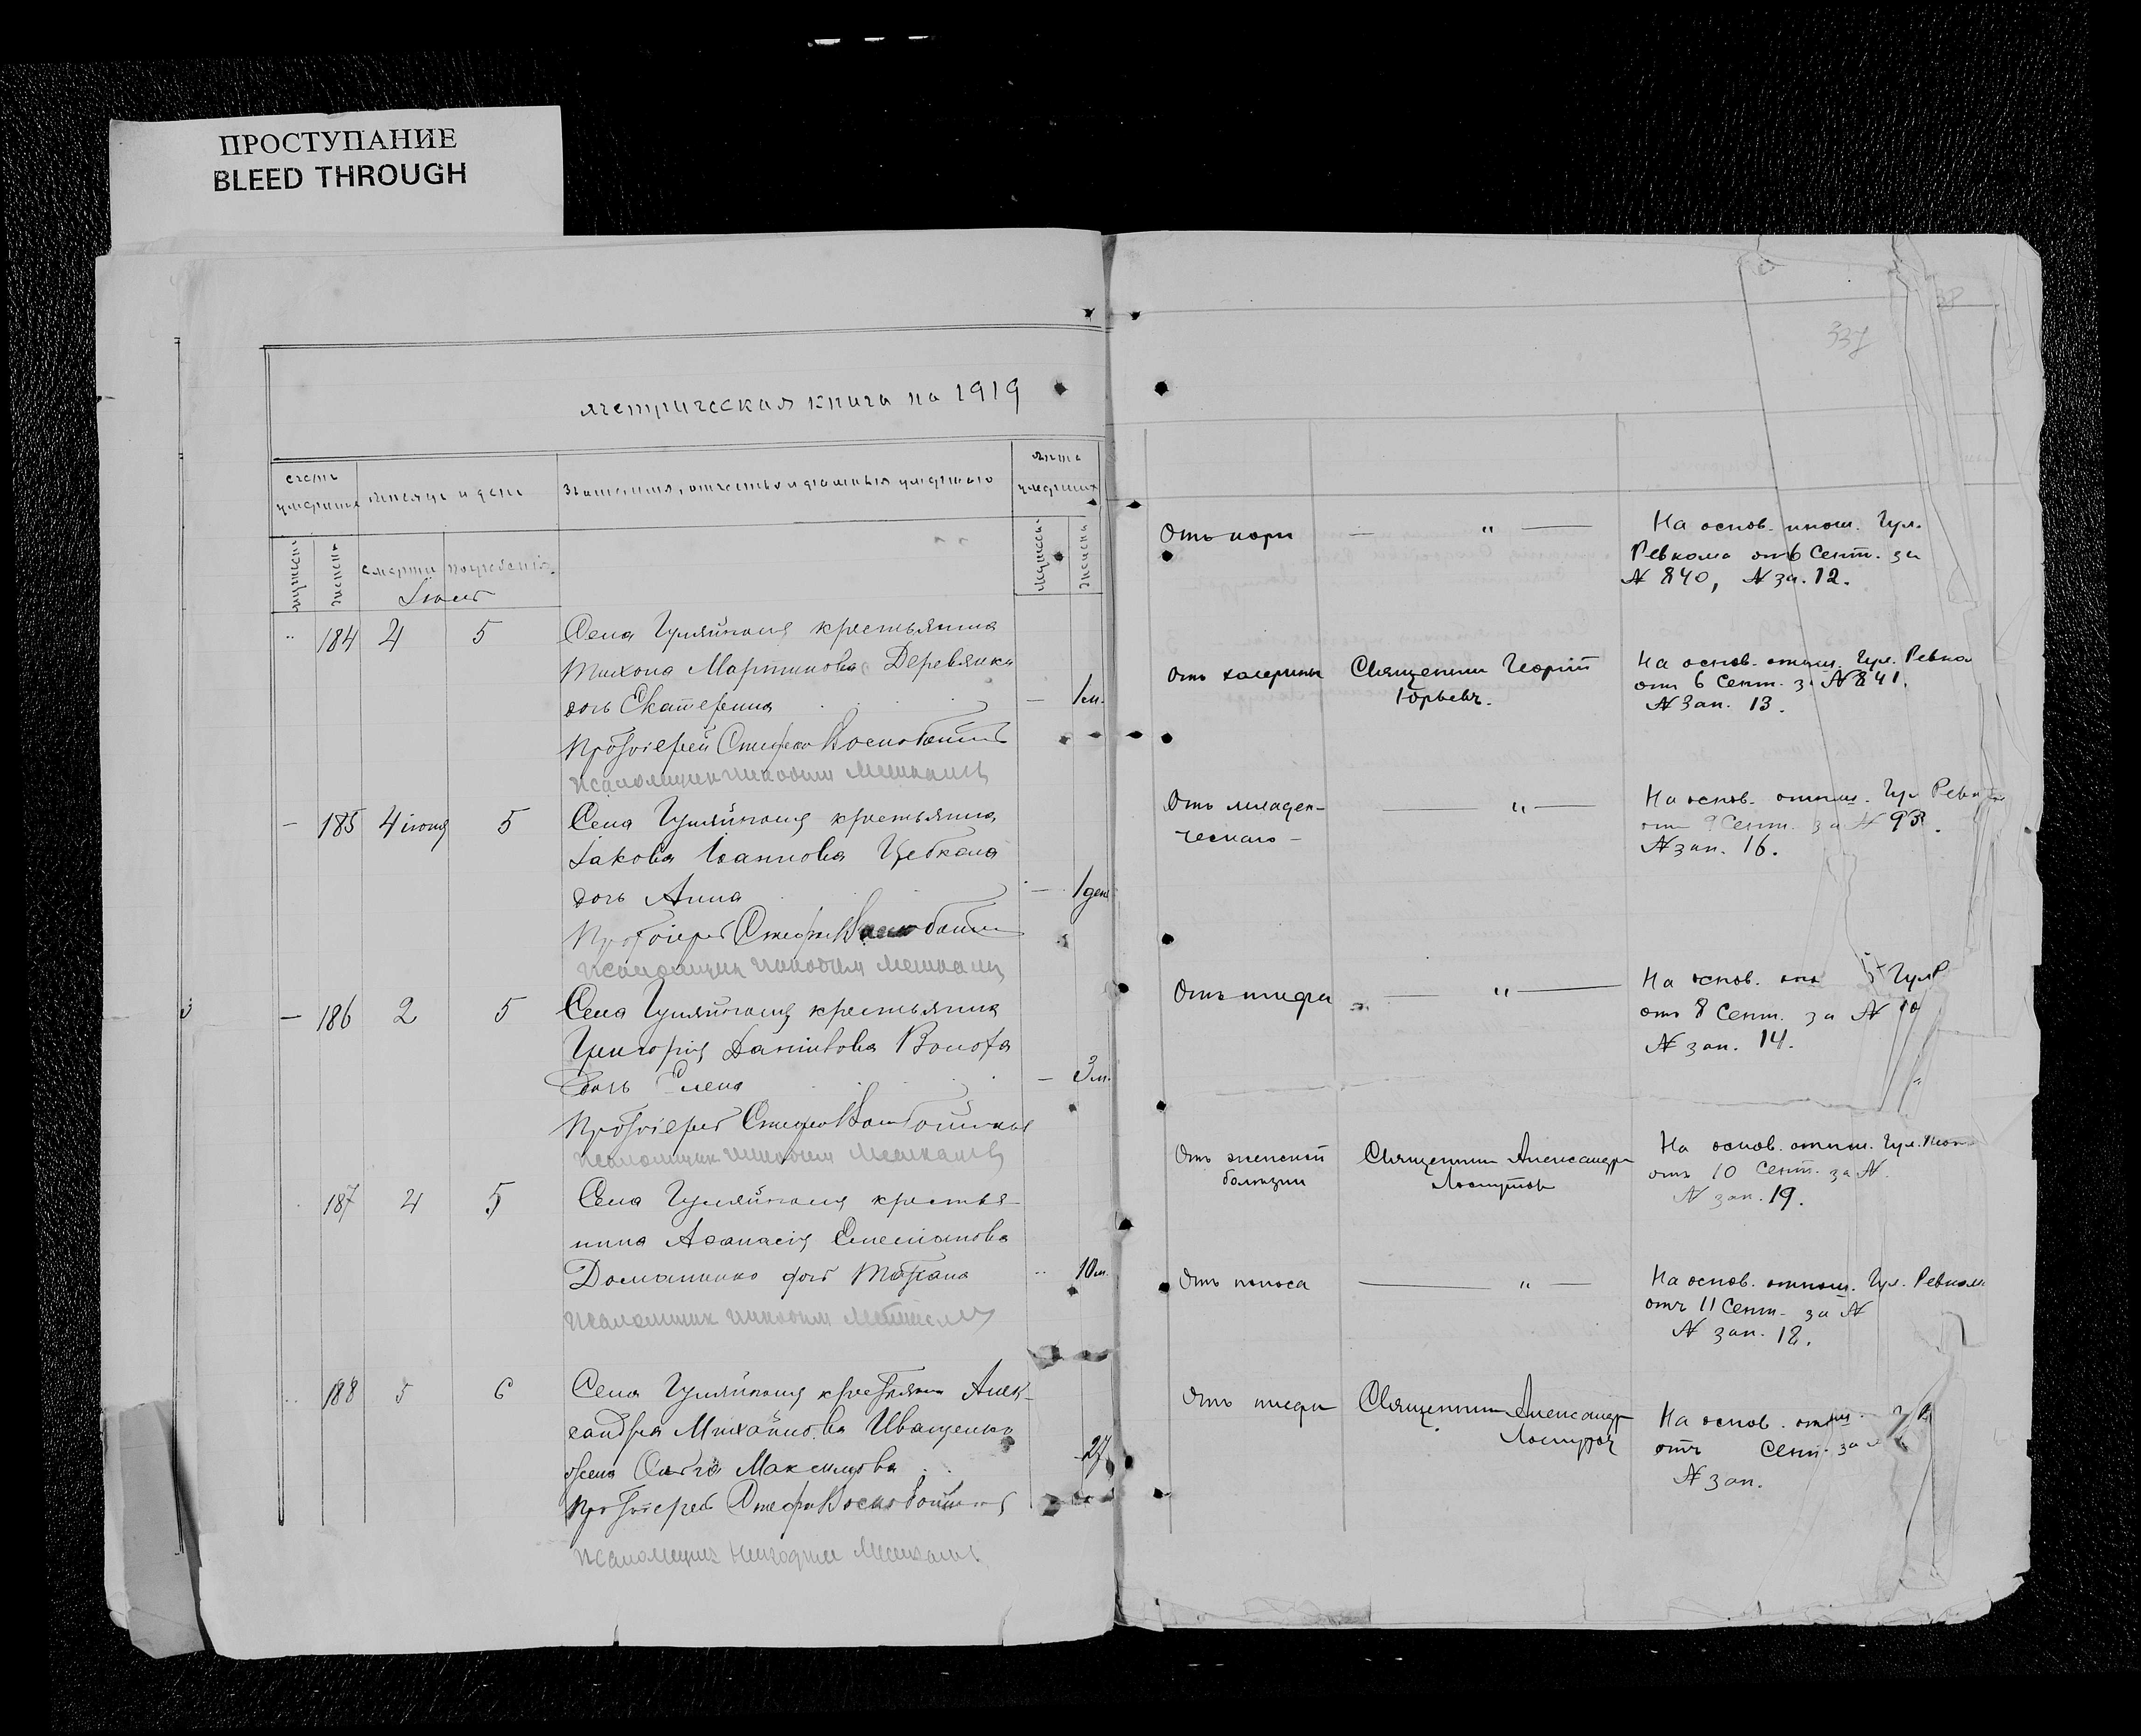 ПРОСТУПАНИЕ
BLEED THROUGH
метрическая книга на 1919
счетъ умершихъ
месяцъ и день
Звание, имя, отчество и фамилия умершаго
лета умершихъ
мужеск.
женск.
смерти
погребенія.
мужеск.
женска
Іюнь
184 4 5 Села Гуляйполя крестьянина
Тихона Мартинова Деревянка
дочь Екатерина — 1 м.
Протоіерей Стефан Воскобойников
псаломщик Никодим
— 185 4 іюня 5 Села Гуляйполя крестьянина
Іакова Іоаннова Цебкала
дочь Анна — 1 день
Протоіерей Стефан Воскобойников
псаломщик Никодим
— 186 2 5 Села Гуляйполя крестьянина
Григорія Даніилова
дочь Елена — 3 м.
Протоіерей Стефан Воскобойников
псаломщик Никодим
187 4 5 Села Гуляйполя крестья-
нина Афанасія Стефанова
Домашенко дочь — 10 м.
псаломщик Никодим
188 5 6 Села Гуляйполя крестьянина Алек-
сандра Михайлова Иващенко
жена Ольга Максимова 27
Протоіерей Стефан Воскобойников
псаломщик Никодим
337
Отъ кори — " —
На основ. отнош. Гул.
Ревкома от 6 Сент. за
№ 840, № за. 12.
Отъ холерины
Священник Георгій
Юрьевъ.
На основ. отнош. Гул. Ревко
отъ 6 Сент. за № 841.
№ Зап. 13.
Отъ младен-
ческаго —
— " —
На основ. отнош. Гул Ревк
от 9 Сент. за № 93
№ зап. 16.
Отъ тифа — " —
На основ. Гул Р
отъ 8 Сент. за № 10
№ зап. 14.
Отъ женской
болезни
Священник Александръ
На основ. отнош. Гул.
отъ 10 Сент. за №
№ зап. 19.
Отъ поноса — " —
На основ. отнош. Гул. Ревком
отъ 11 Сент. за №
№ зап. 18.
Отъ тифа
Священник Александръ
На основ. отнош.
отъ Сент. за
№ зап.